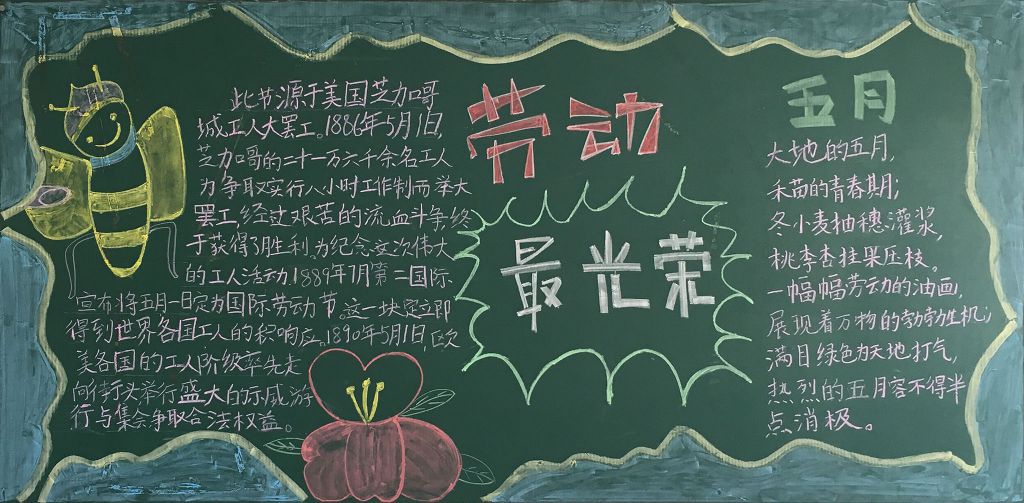 此节源于美国芝加哥
城工人大罢工。1886年5月1日,
芝加哥的二十一万六千余名工人
为争取实行八小时工作制而举大
罢工,经过艰苦的流血斗争,终
于获得了胜利。为纪念这次伟大
的工人活动,1889年7月第二国际
宣布将五月一日定为国际劳动节。这一块定立即
得到世界各国工人的积响应。1890年5月1日,欧
美各国的工人阶级率先走
向街头举行盛大的示威游
行与集会争取合法权益。
劳动
最光荣
五月
大地的五月,
禾苗的青春期;
冬小麦抽穗灌浆,
桃李杏挂果压枝。
一幅幅劳动的油画,
展现着万物的勃勃生机;
满目绿色为天地打气,
热烈的五月容不得半
点消极。